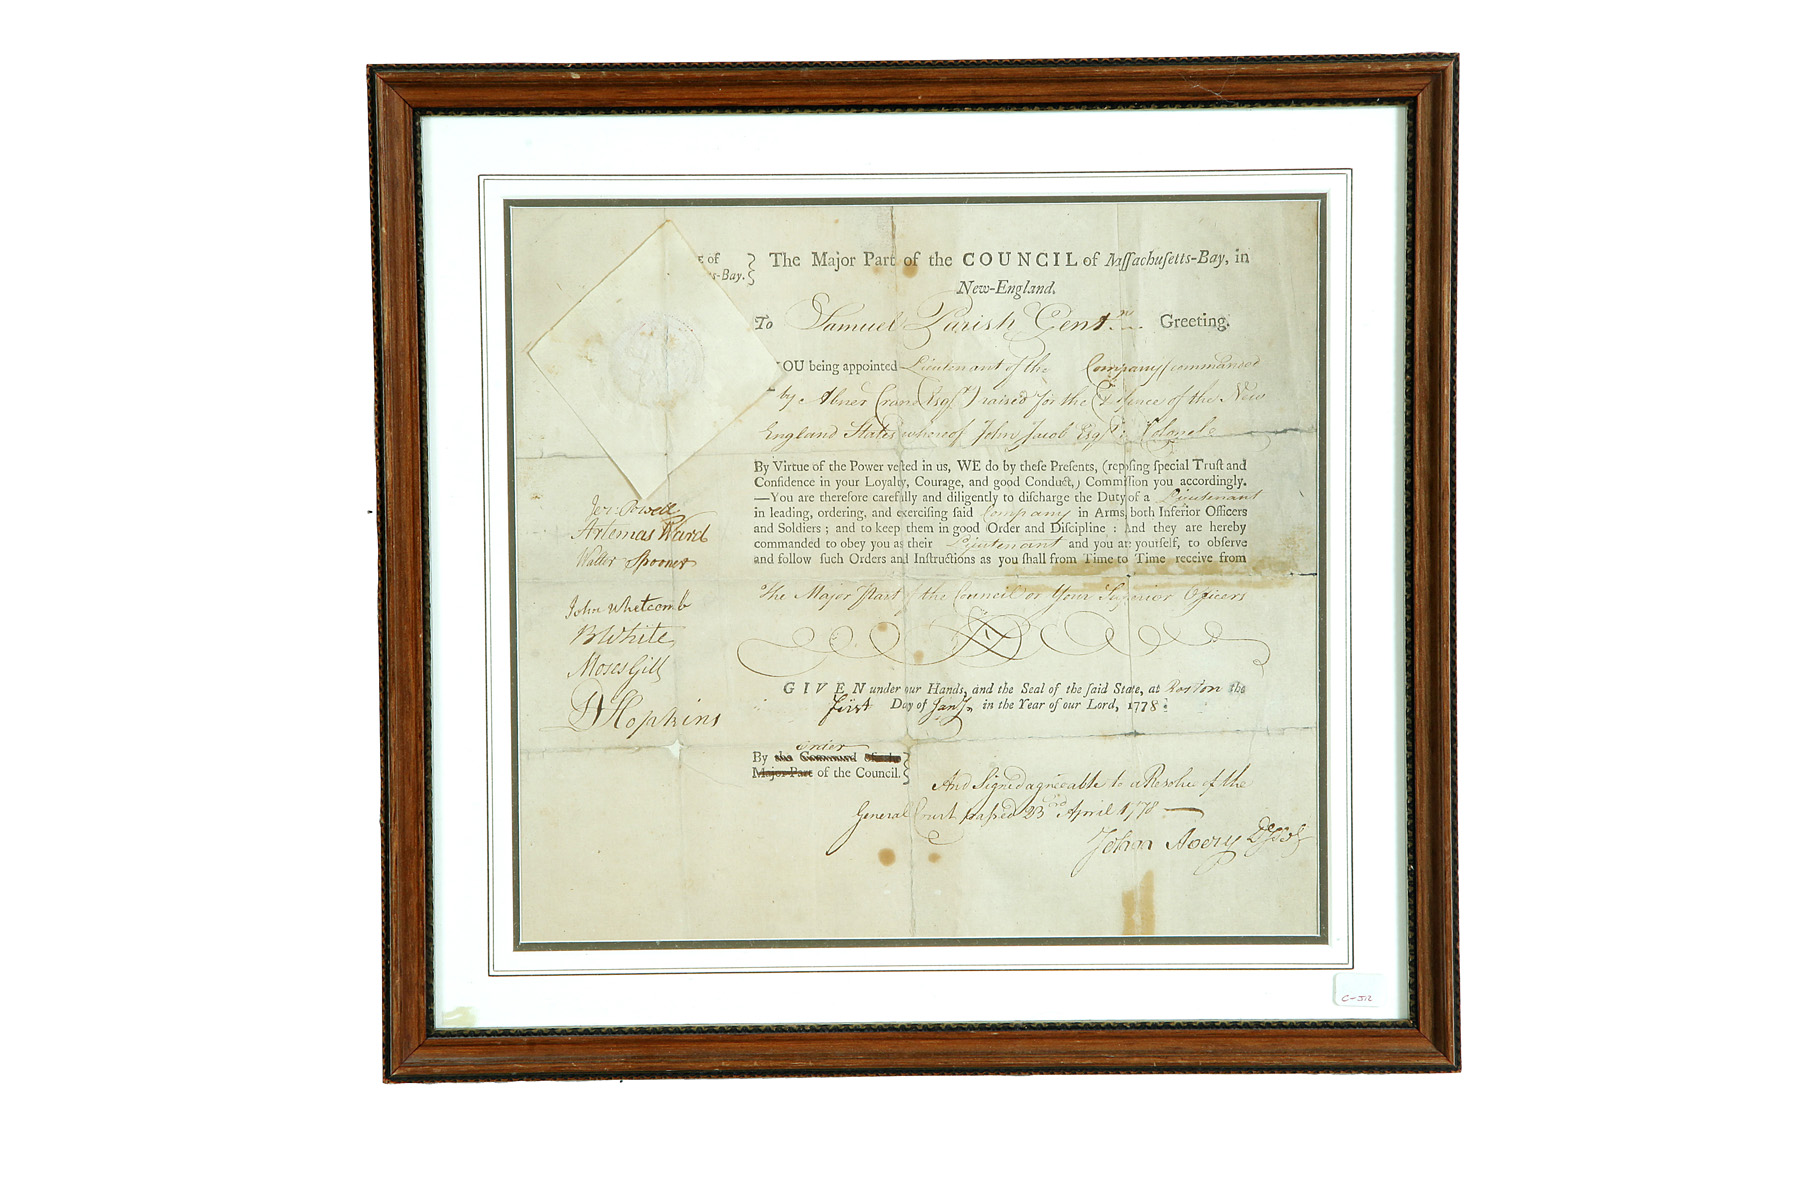 E of
s-Bay.
The Major Part of the COUNCIL of Massachusetts-Bay, in
New-England.
To Samuel Parish Gent.ⁿ Greeting.
YOU being appointed Lieutenant of the Company (commanded
by Abner Crane Esqʳ) raised for the Defence of the New
England States whereof John Jacob Esqʳ is Colonel
By Virtue of the Power veſted in us, WE do by theſe Preſents, (repoſing ſpecial Truſt and
Confidence in your Loyalty, Courage, and good Conduct,) Commiſſion you accordingly.
—You are therefore carefully and diligently to diſcharge the Duty of a Lieutenant
in leading, ordering, and exerciſing ſaid Company in Arms, both Inferior Officers
and Soldiers; and to keep them in good Order and Diſcipline: And they are hereby
commanded to obey you as their Lieutenant and you are yourſelf, to obſerve
and follow ſuch Orders and Inſtructions as you ſhall from Time to Time receive from
The Major Part of the Council or Your Superior Officers
GIVEN under our Hands, and the Seal of the ſaid State, at Boston the
first Day of Janʸ in the Year of our Lord, 1778.
order
By the Command of the
Major Part of the Council.
And Signed agreeable to a Resolve of the
General Court passed 23rd April 1778
John Avery D Secʸ
Jer: Powell
Artemas Ward
Walter Spooner
John Whetcomb
B White
Moses Gill
D Hopkins
C-JR